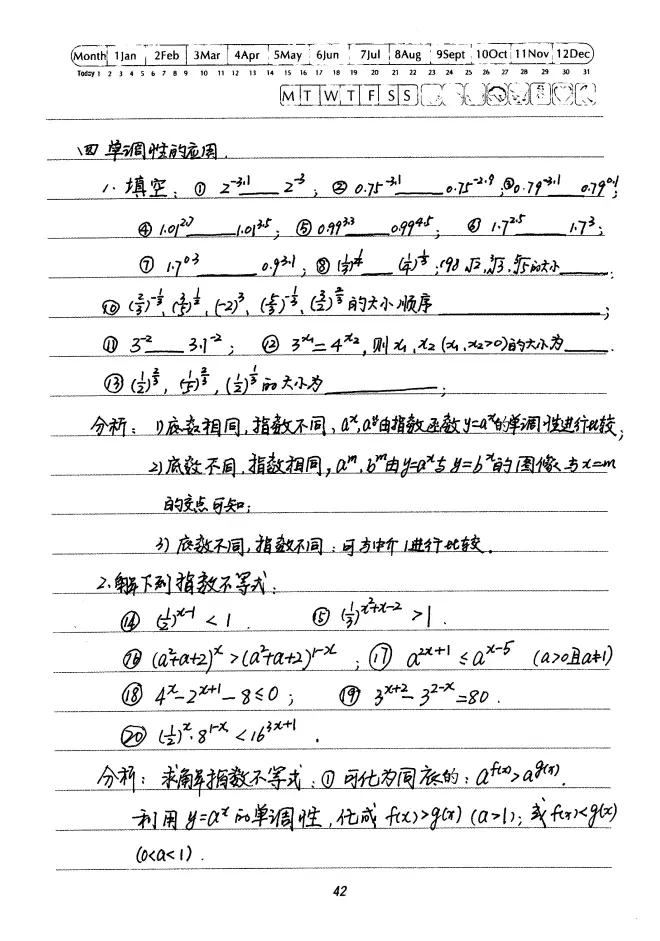 Month 1Jan 2Feb 3Mar 4Apr 5May 6Jun 7Jul 8Aug 9Sept 10Oct 11Nov 12Dec
Today 1 2 3 4 5 6 7 8 9 10 11 12 13 14 15 16 17 18 19 20 21 22 23 24 25 26 27 28 29 30 31
M T W T F S S
四 单调性的应用.
1. 填空: ① 2^-3.1 ____ 2^-3; ② 0.75^-3.1 ____ 0.75^-2.9; ③ 0.79^-3.1 ____ 0.79^0.1;
④ 1.01^2.7 ____ 1.01^3.5; ⑤ 0.99^3.3 ____ 0.99^4.5; ⑥ 1.7^2.5 ____ 1.7^3;
⑦ 1.7^0.3 ____ 0.9^3.1; ⑧ ____ ; √2, ∛3, 的大小 ____;
⑩ (-2)^3, 的大小顺序 ____;
⑪ 3^-2 ____ 3.1^-2; ⑫ 3^x₁ = 4^x₂, 则 x₁, x₂ (x₁, x₂>0)的大小为 ____.
⑬ (1/2)^2/3, (1/5)^2/3, (1/2)^1/3 的大小为 ____;
分析: 1) 底数相同, 指数不同, 由指数函数 y=a^x的单调性进行比较;
2) 底数不同, 指数相同, a^m, b^m 由 y=a^x与 y=b^x的图像与 x=m
的交点可知;
3) 底数不同, 指数不同: 可与中介 1进行比较.
2. 解下列指数不等式:
⑭ (1/2)^x-1 < 1 ⑮ (1/3)^x²+x-2 > 1.
⑯ (a²+a+2)^x > (a²+a+2)^1-x; ⑰ a^2x+1 ≤ a^x-5 (a>0且a≠1)
⑱ 4^x - 2^x+1 - 8 ≤ 0; ⑲ 3^x+2 - 3^2-x = 80.
⑳ (1/2)^x · 8^1-x < 16^3x+1.
分析: 求解指数不等式: ① 可化为同底的: a^f(x) > a^g(x).
利用 y=a^x 的单调性, 化成 f(x)>g(x) (a>1); 或 f(x)<g(x)
(0<a<1).
42